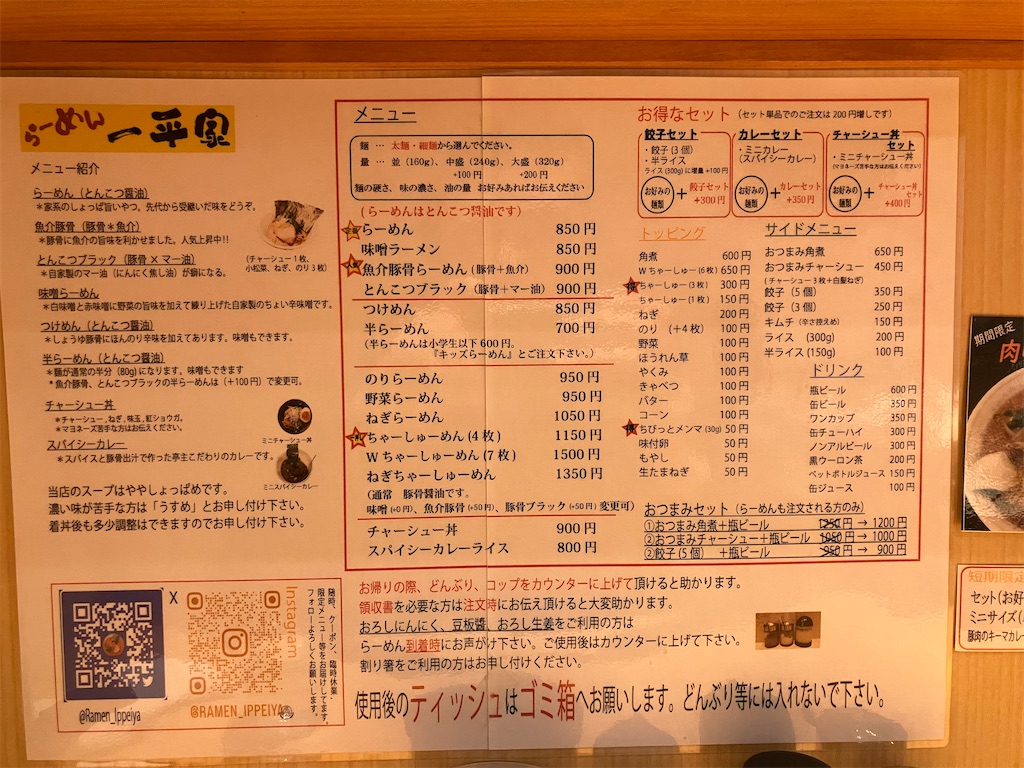 らーめん 一平家
メニュー紹介
らーめん（とんこつ醤油）
＊家系のしょっぱ旨いやつ。先代から受継いだ味をどうぞ。
魚介豚骨（豚骨＊魚介）
＊豚骨に魚介の旨味を利かせました。人気上昇中!!
とんこつブラック（豚骨×マー油）
＊自家製のマー油（にんにく焦し油）が癖になる。
（チャーシュー1枚、
小松菜、ねぎ、のり3枚）
味噌らーめん
＊白味噌と赤味噌に野菜の旨味を加えて練り上げた自家製のちょい辛味噌です。
つけめん（とんこつ醤油）
＊しょうゆ豚骨にほんのり辛味を加えてあります。味噌もできます。
半らーめん（とんこつ醤油）
＊麺が通常の半分（80g)になります。味噌もできます
＊魚介豚骨、とんこつブラックの半らーめんは（＋100円）で変更可。
チャーシュー丼
＊チャーシュー,ねぎ,味玉,紅ショウガ。
＊マヨネーズ苦手な方はお伝えください。
ミニチャーシュー丼
スパイシーカレー
＊スパイスと豚骨出汁で作った亭主こだわりのカレーです。
ミニスパイシーカレー
当店のスープはややしょっぱめです。
濃い味が苦手な方は「うすめ」とお申し付け下さい。
着丼後も多少調整はできますのでお申し付け下さい。
X
@Ramen_Ippeiya
Instagram
@RAMEN_IPPEIYA
随時、クーポン、臨時休業
限定メニュー等をお届けしてます。
フォローよろしくお願いします。
メニュー
麺 … 太麺・細麺から選んでください。
量 … 並（160g）、中盛（240g）、大盛（320g）
+100円 +200円
麺の硬さ、味の濃さ、油の量 お好みあればお伝えください
（らーめんはとんこつ醤油です）
らーめん 850円
味噌ラーメン 850円
魚介豚骨らーめん（豚骨＋魚介） 900円
とんこつブラック（豚骨＋マー油） 900円
つけめん 850円
半らーめん 700円
（半らーめんは小学生以下600円。
『キッズらーめん』とご注文下さい。）
のりらーめん 950円
野菜らーめん 950円
ねぎらーめん 1050円
ちゃーしゅーめん（4枚） 1150円
Wちゃーしゅーめん（7枚） 1500円
ねぎちゃーしゅーめん 1350円
（通常 豚骨醤油です。
味噌（+0円）、魚介豚骨（+50円）、豚骨ブラック（+50円）変更可）
チャーシュー丼 900円
スパイシーカレーライス 800円
お得なセット（セット単品でのご注文は200円増しです）
餃子セット
・餃子（3個）
・半ライス
ライス（300g）に増量+100円
お好みの麺類＋餃子セット+300円
カレーセット
・ミニカレー
（スパイシーカレー）
お好みの麺類＋カレーセット+350円
チャーシュー丼セット
・ミニチャーシュー丼
（マヨネーズ苦手な方はお伝えください）
お好みの麺類＋チャーシュー丼セット+400円
トッピング
角煮 600円
Wちゃーしゅー（6枚） 650円
ちゃーしゅー（3枚） 300円
ちゃーしゅー（1枚） 150円
ねぎ 200円
のり（+4枚） 100円
野菜 100円
ほうれん草 100円
やくみ 100円
きゃべつ 100円
バター 100円
コーン 100円
ちびっとメンマ（30g） 50円
味付卵 50円
もやし 50円
生たまねぎ 50円
サイドメニュー
おつまみ角煮 650円
おつまみチャーシュー 450円
（チャーシュー3枚+白髪ねぎ）
餃子（5個） 350円
餃子（3個） 250円
キムチ（辛さ控えめ） 150円
ライス（300g） 200円
半ライス（150g） 100円
ドリンク
瓶ビール 600円
缶ビール 350円
ワンカップ 350円
缶チューハイ 300円
ノンアルビール 300円
黒ウーロン茶 200円
ペットボトルジュース 150円
缶ジュース 100円
おつまみセット（らーめんも注文される方のみ）
①おつまみ角煮＋瓶ビール 1250円→1200円
②おつまみチャーシュー＋瓶ビール 1050円→1000円
②餃子（5個） ＋瓶ビール 950円→ 900円
お帰りの際、どんぶり、コップをカウンターに上げて頂けると助かります。
領収書を必要な方は注文時にお伝え頂けると大変助かります。
おろしにんにく、豆板醤、おろし生姜をご利用の方は
らーめん到着時にお声がけ下さい。ご使用後はカウンターに上げて下さい。
割り箸をご利用の方はお申し付けください。
使用後のティッシュはゴミ箱へお願いします。どんぶり等には入れないで下さい。
期間限定
肉
短期限定
セット（お好
ミニサイズ（
豚肉のキーマカレ